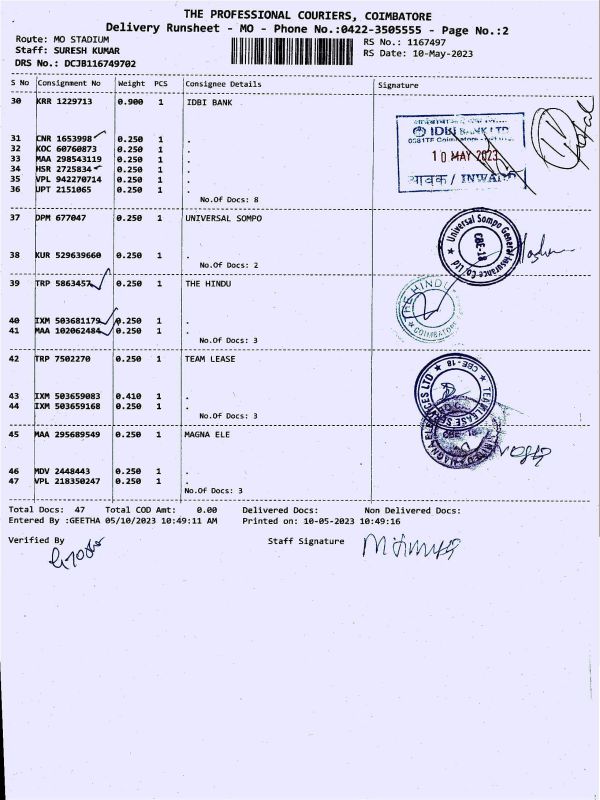 THE PROFESSIONAL COURIERS, COIMBATORE
Delivery Runsheet - MO - Phone No.:0422-3505555 - Page No.:2
Route: MO STADIUM
RS No.: 1167497
Staff: SURESH KUMAR
RS Date: 10-May-2023
DRS No.: DCJB116749702
S No Consignment No Weight PCS Consignee Details Signature
30 KRR 1229713 0.900 1 IDBI BANK
31 CNR 1653998 0.250 1 .
32 KOC 60760873 0.250 1 .
33 MAA 298543119 0.250 1 .
34 HSR 2725834 0.250 1 .
35 VPL 942270714 0.250 1 .
36 UPT 2151065 0.250 1 .
No.Of Docs: 8
IDBI BANK LTD
10 MAY 2023
आवक / INWARD
37 DPM 677047 0.250 1 UNIVERSAL SOMPO
38 KUR 529639660 0.250 1 .
No.Of Docs: 2
Universal Sompo General Insurance Co Ltd
CBE-18
39 TRP 5863457 0.250 1 THE HINDU
40 IXM 503681179 0.250 1 .
41 MAA 102062484 0.250 1 .
No.Of Docs: 3
THE HINDU
COIMBATORE
42 TRP 7502270 0.250 1 TEAM LEASE
43 IXM 503659083 0.410 1 .
44 IXM 503659168 0.250 1 .
No.Of Docs: 3
TEAMLEASE SERVICES LTD
CBE -18
45 MAA 295689549 0.250 1 MAGNA ELE
46 MDV 2448443 0.250 1 .
47 VPL 218350247 0.250 1 .
No.Of Docs: 3
Total Docs: 47 Total COD Amt: 0.00 Delivered Docs: Non Delivered Docs:
Entered By :GEETHA 05/10/2023 10:49:11 AM Printed on: 10-05-2023 10:49:16
Verified By
Staff Signature